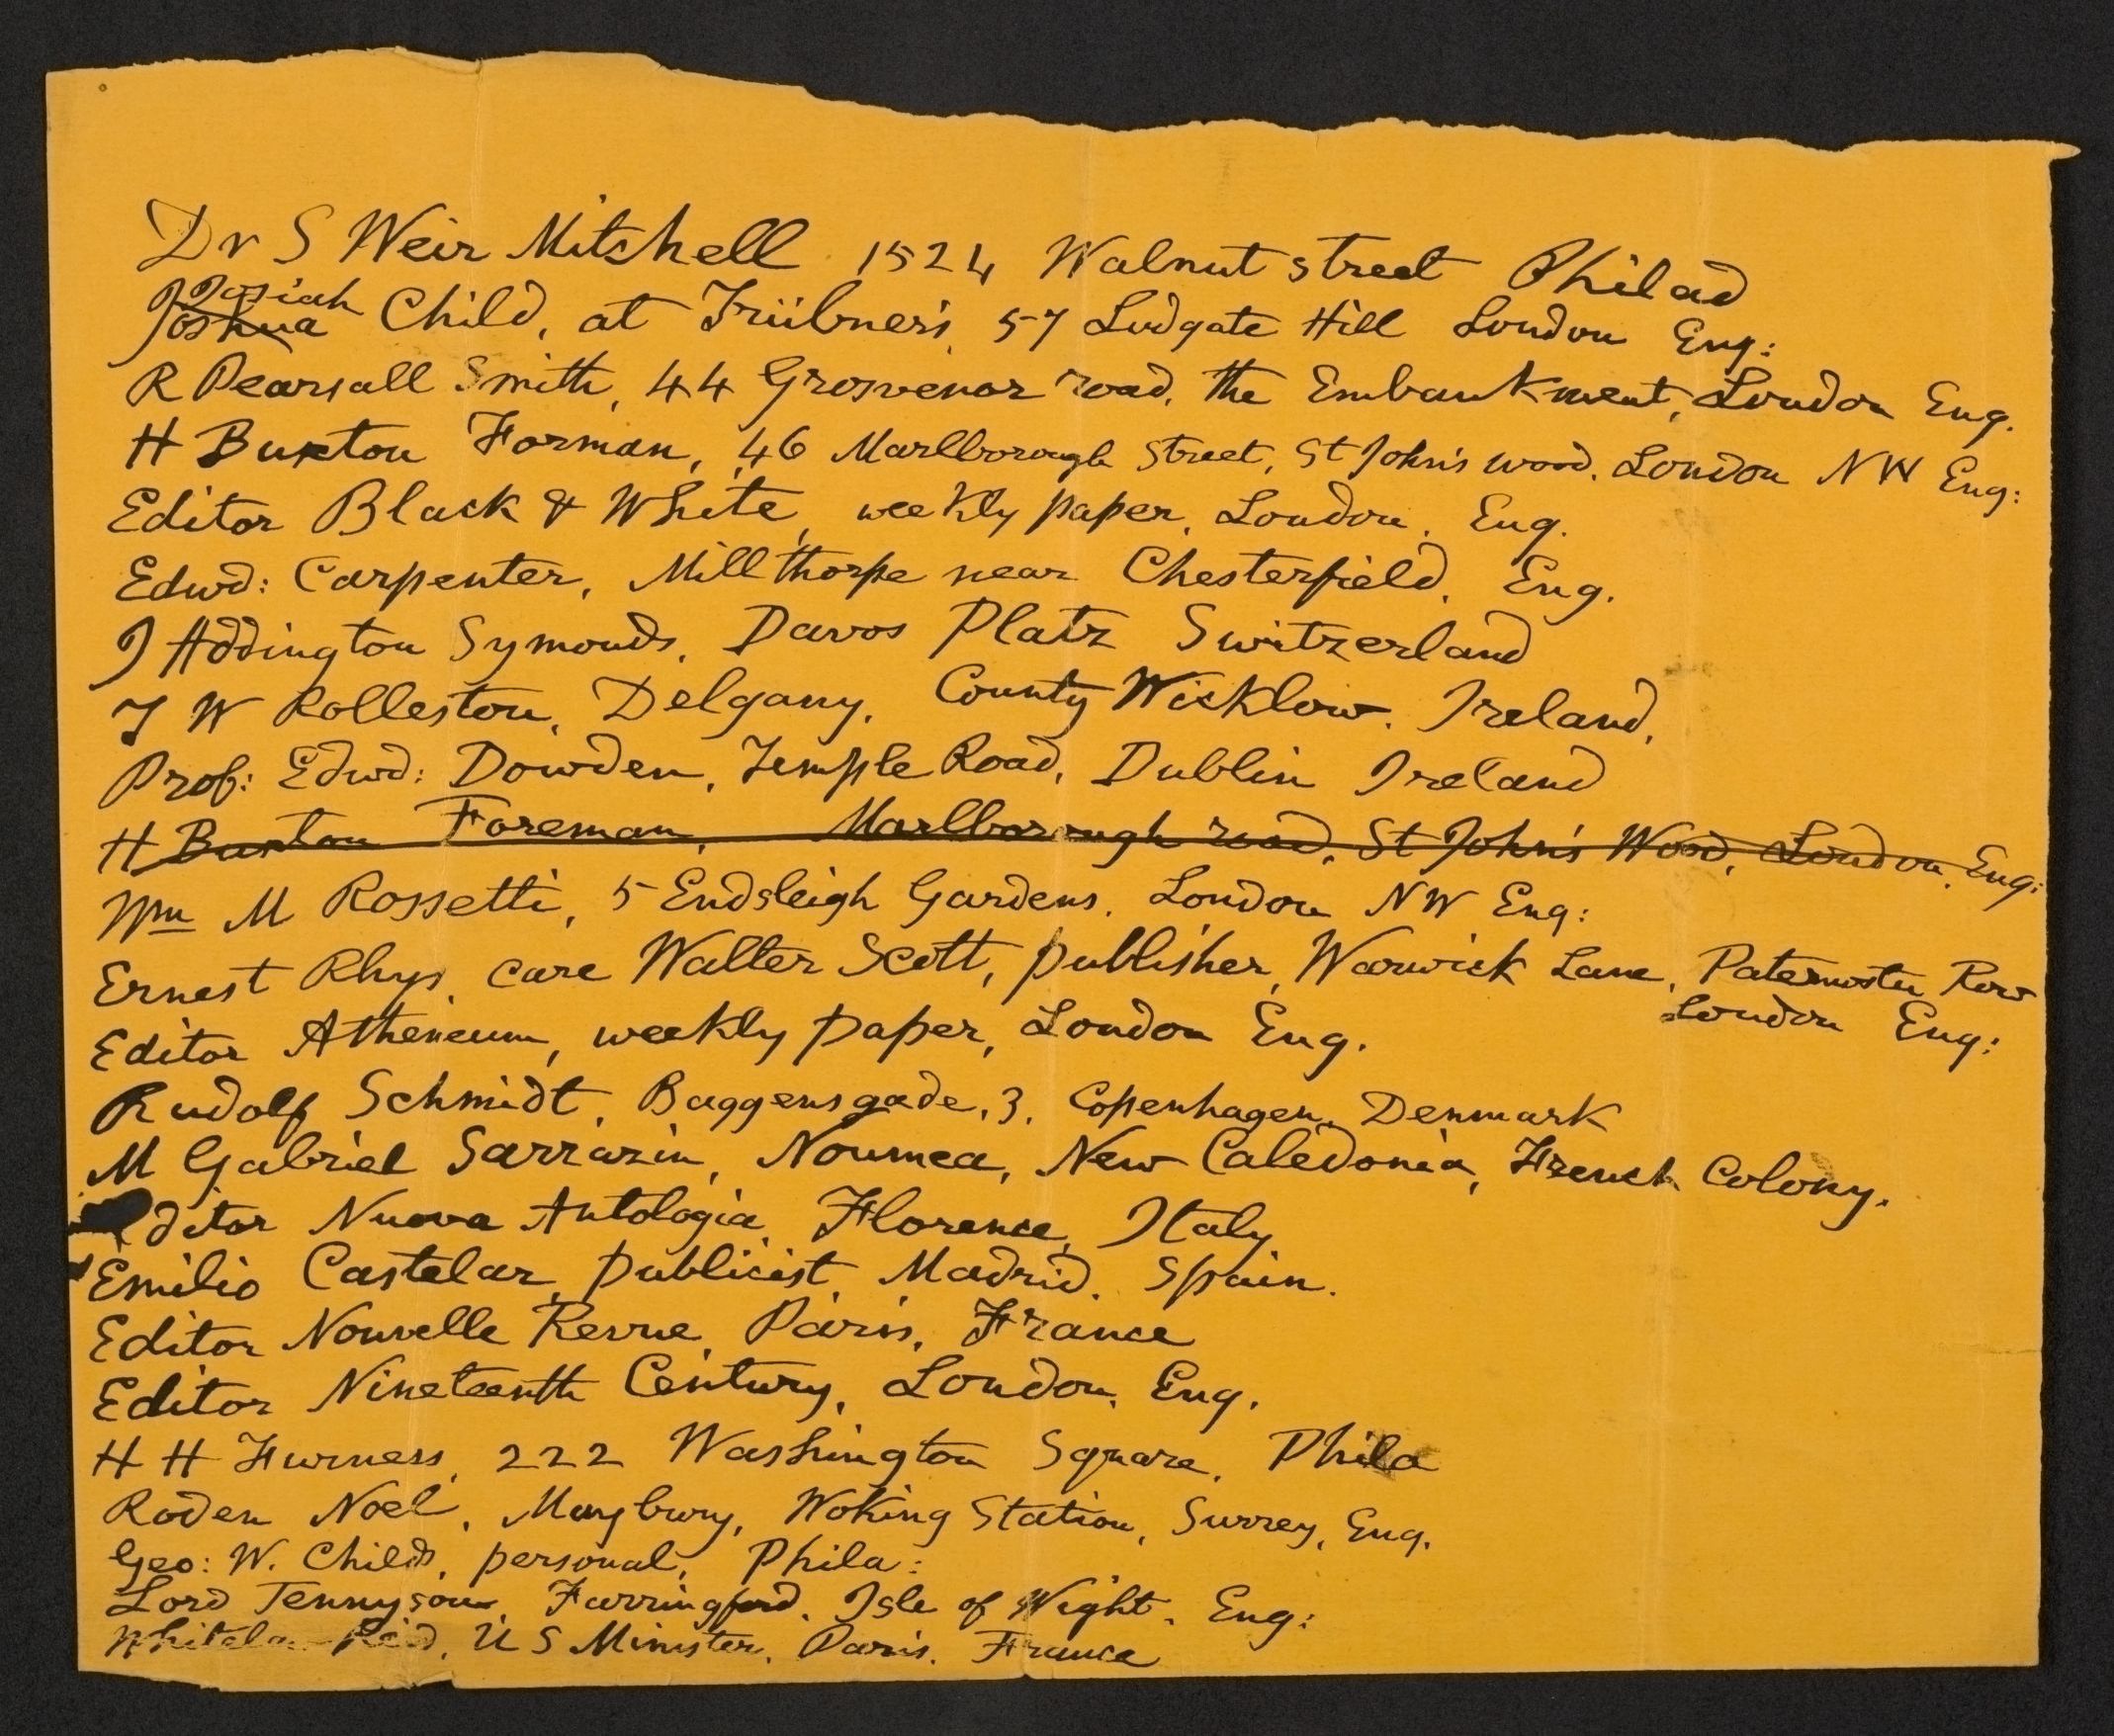 Dr S Weir Mitshell 1524 Walnut street Philad
Josiah
Joshua Child, at Trübner's, 57 Ludgate Hill London Eng:
R Pearsall Smith, 44 Grosvenor road, the Embankment, London Eng.
H Buxton Forman, 46 Marlborough Street, St John's wood, London NW Eng:
Editor Black & White, weekly paper, London, Eng.
Edwd: Carpenter, Millthorpe near Chesterfield, Eng.
J Addington Symonds, Davos Platz Switzerland
T W Rolleston, Delgany, County Wicklow, Ireland,
Prof: Edwd: Dowden, Temple Road, Dublin Ireland
H Buxton Foreman, Marlborough road, St John's Wood, London, Eng:
Wm M Rossetti, 5 Endsleigh Gardens, London NW Eng:
Ernest Rhys, care Walter Scott, publisher, Warwick Lane, Paternoster Row
London Eng:
Editor Atheneum, weekly paper, London Eng.
Rudolf Schmidt, Baggensgade, 3, Copenhagen, Denmark
M Gabriel Sarrazin, Noumea, New Caledonia, French Colony.
Editor Nuova Antologia, Florence, Italy
Emilio Castelar, publicist, Madrid, Spain.
Editor Nouvelle Revue, Paris, France
Editor Nineteenth Century, London, Eng.
H H Furness, 222 Washington Square, Phila
Roden Noel, Maybury, Woking Station, Surrey, Eng.
Geo: W. Childs, personal, Phila:
Lord Tennyson, Farringford, Isle of Wight, Eng:
Whitelaw Reid, U S Minister, Paris, France